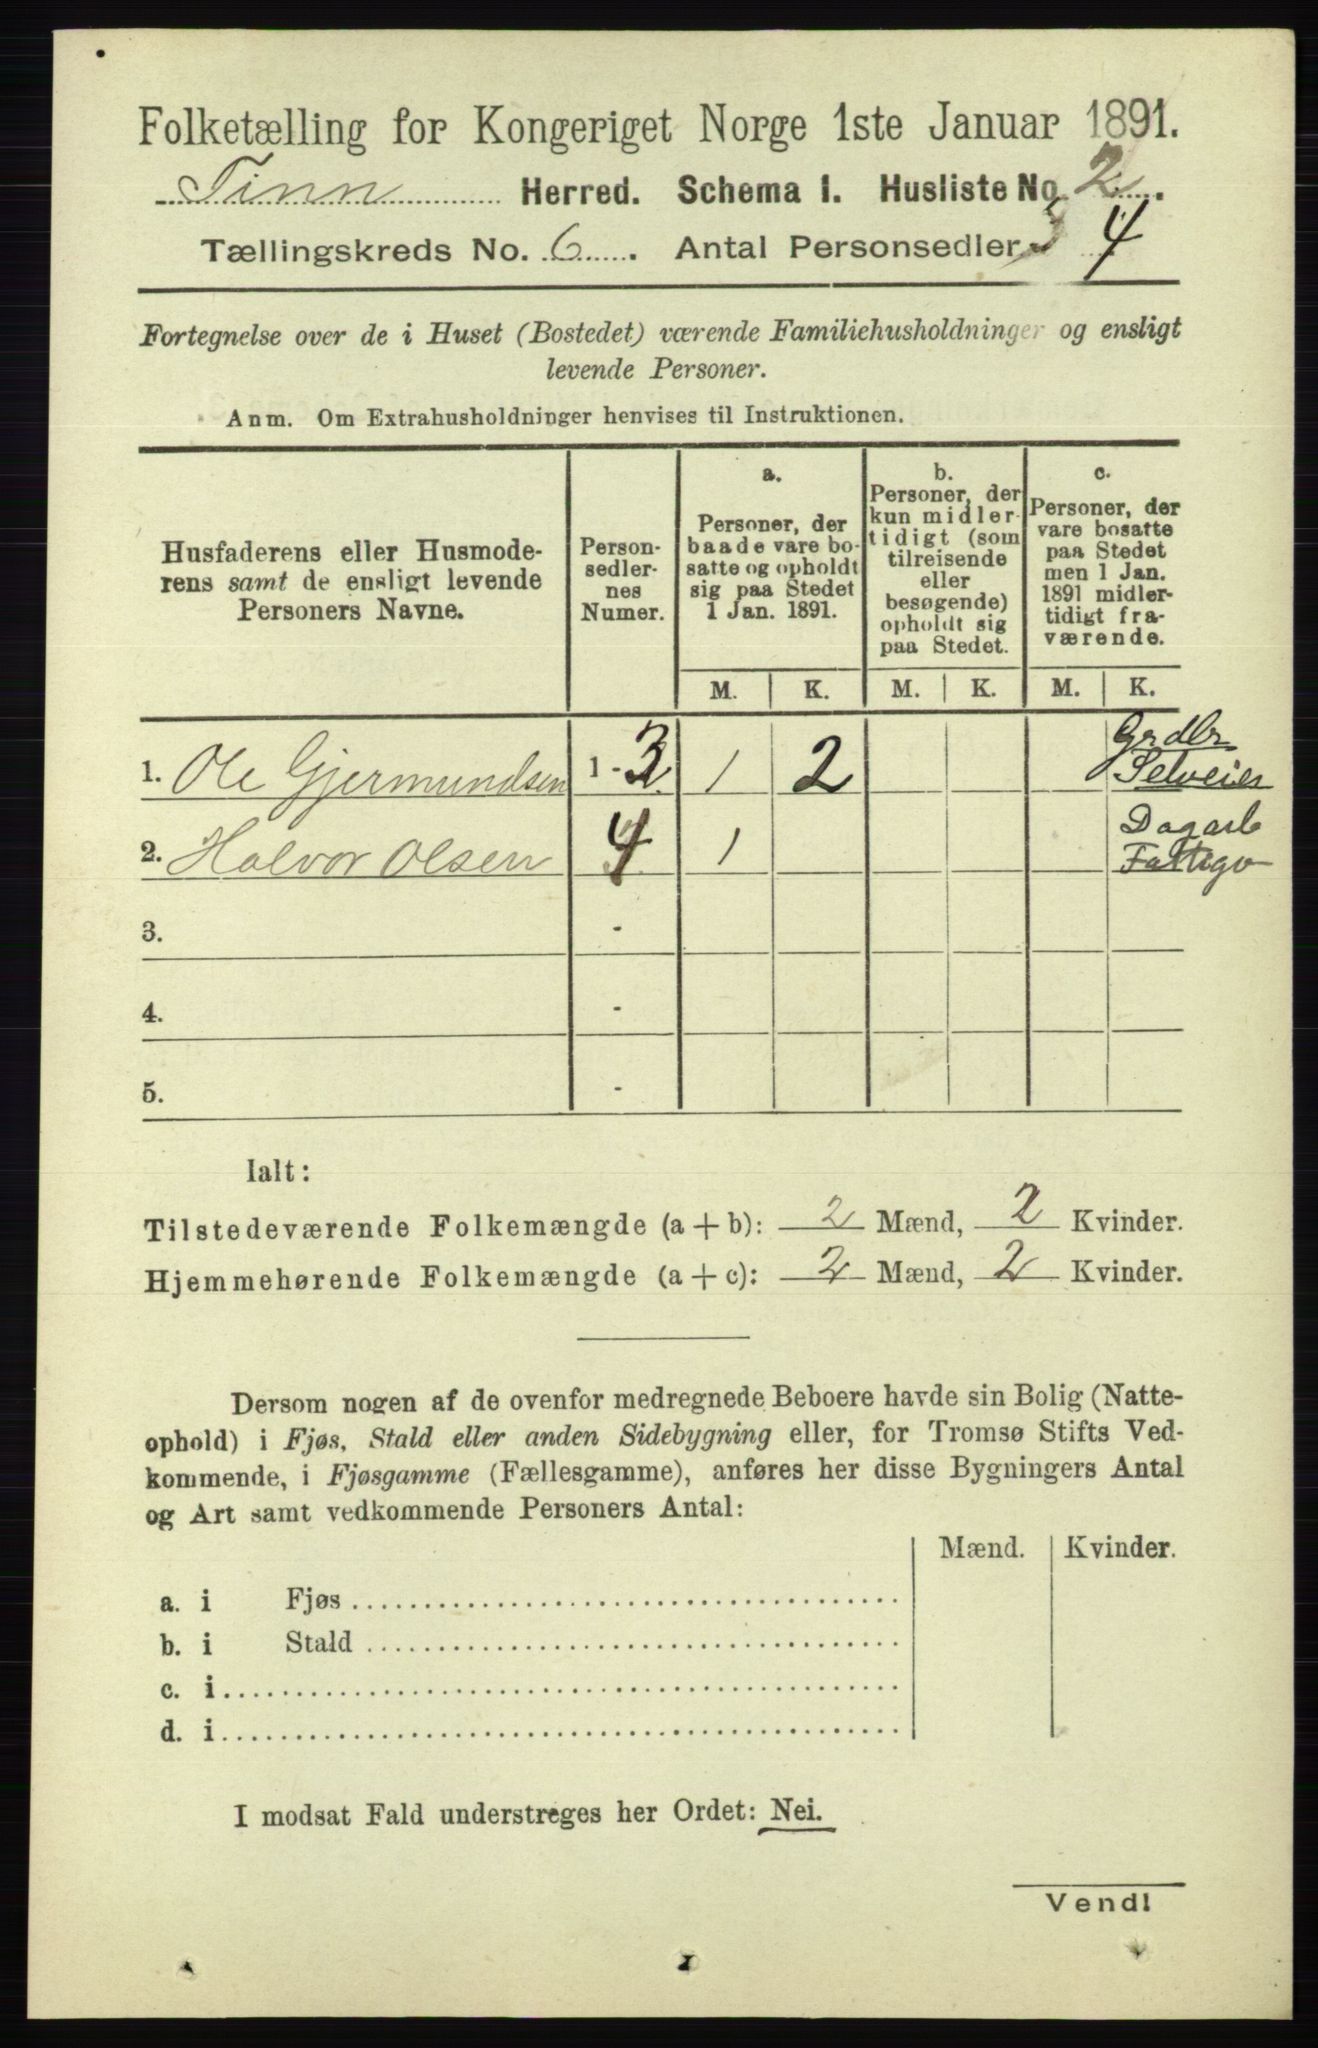 Folketælling for Kongeriget Norge 1ste Januar 1891.
Tinn Herred. Schema 1. Husliste No. 2.
Tællingskreds No. 6. Antal Personsedler 4
Fortegnelse over de i Huset (Bostedet) værende Familiehusholdninger og ensligt
levende Personer.
Anm. Om Extrahusholdninger henvises til Instruktionen.
Husfaderens eller Husmode-
rens samt de ensligt levende
Personers Navne.
Person-
sedler-
nes
Numer.
a.
Personer, der
baade vare bo-
satte og opholdt
sig paa Stedet
1 Jan. 1891.
b.
Personer, der
kun midler-
tidigt (som
tilreisende
eller
besøgende)
opholdt sig
paa Stedet.
c.
Personer, der
vare bosatte
paa Stedet
men 1 Jan.
1891 midler-
tidigt fra-
værende.
M. K. M. K. M. K.
1. Ole Gjermundsen 1 - 3 1 2 Grdbr
Selveier
2. Halvor Olsen 4 1 Dagarb
Fattigv
3. -
4. -
5. -
Ialt:
Tilstedeværende Folkemængde (a + b): 2 Mænd, 2 Kvinder.
Hjemmehørende Folkemængde (a + c): 2 Mænd, 2 Kvinder.
Dersom nogen af de ovenfor medregnede Beboere havde sin Bolig (Natte-
ophold) i Fjøs, Stald eller anden Sidebygning eller, for Tromsø Stifts Ved-
kommende, i Fjøsgamme (Fællesgamme), anføres her disse Bygningers Antal
og Art samt vedkommende Personers Antal:
Mænd. Kvinder.
a. i Fjøs
b. i Stald
c. i
d. i
I modsat Fald understreges her Ordet: Nei.
Vend!